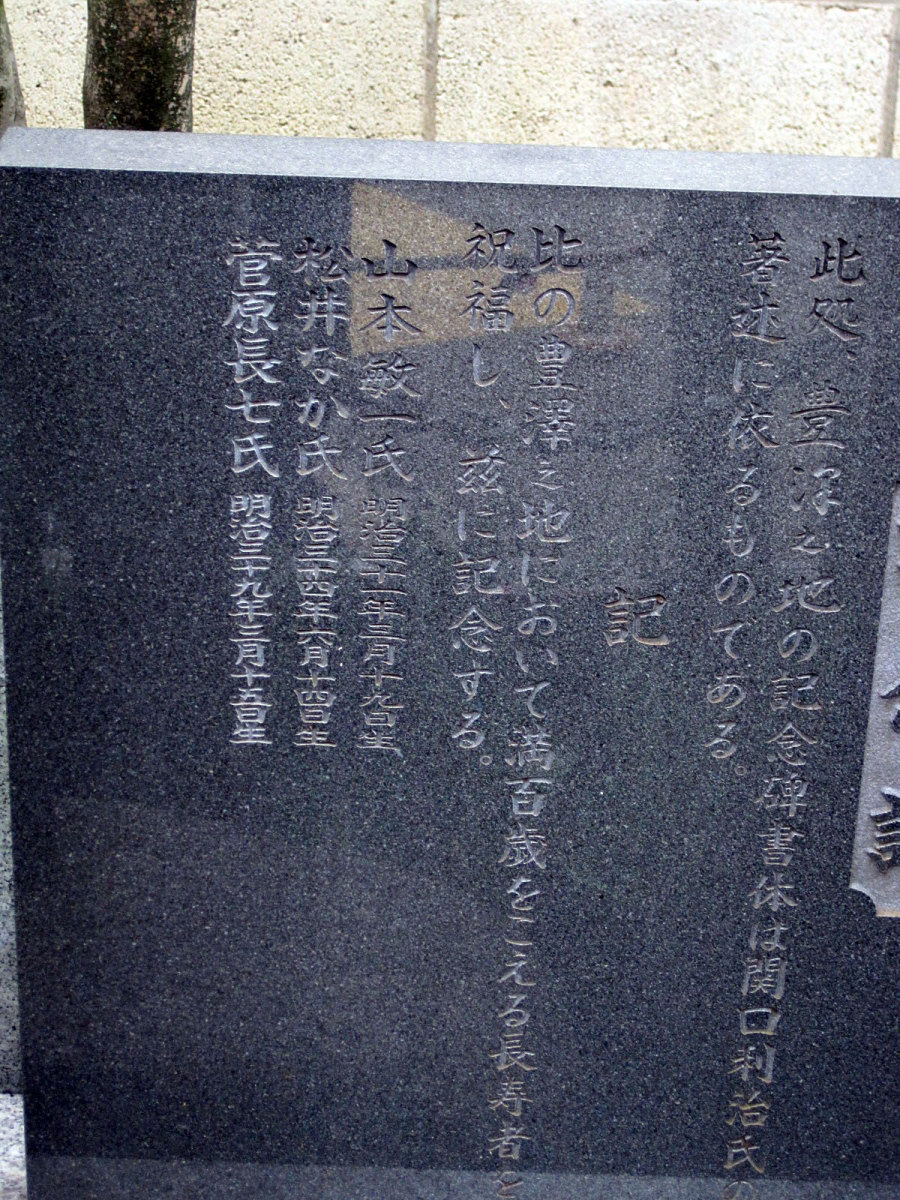 此処、豊澤之地の記念碑書体は関口利治氏の
著述に依るものである。
記
比の豊澤之地において満百歳をこえる長寿者と
祝福し、茲に記念する。
山本敏一氏 明治三十一年三月十九日生
松井なか氏 明治三十四年六月十四日生
菅原長七氏 明治三十九年三月十五日生